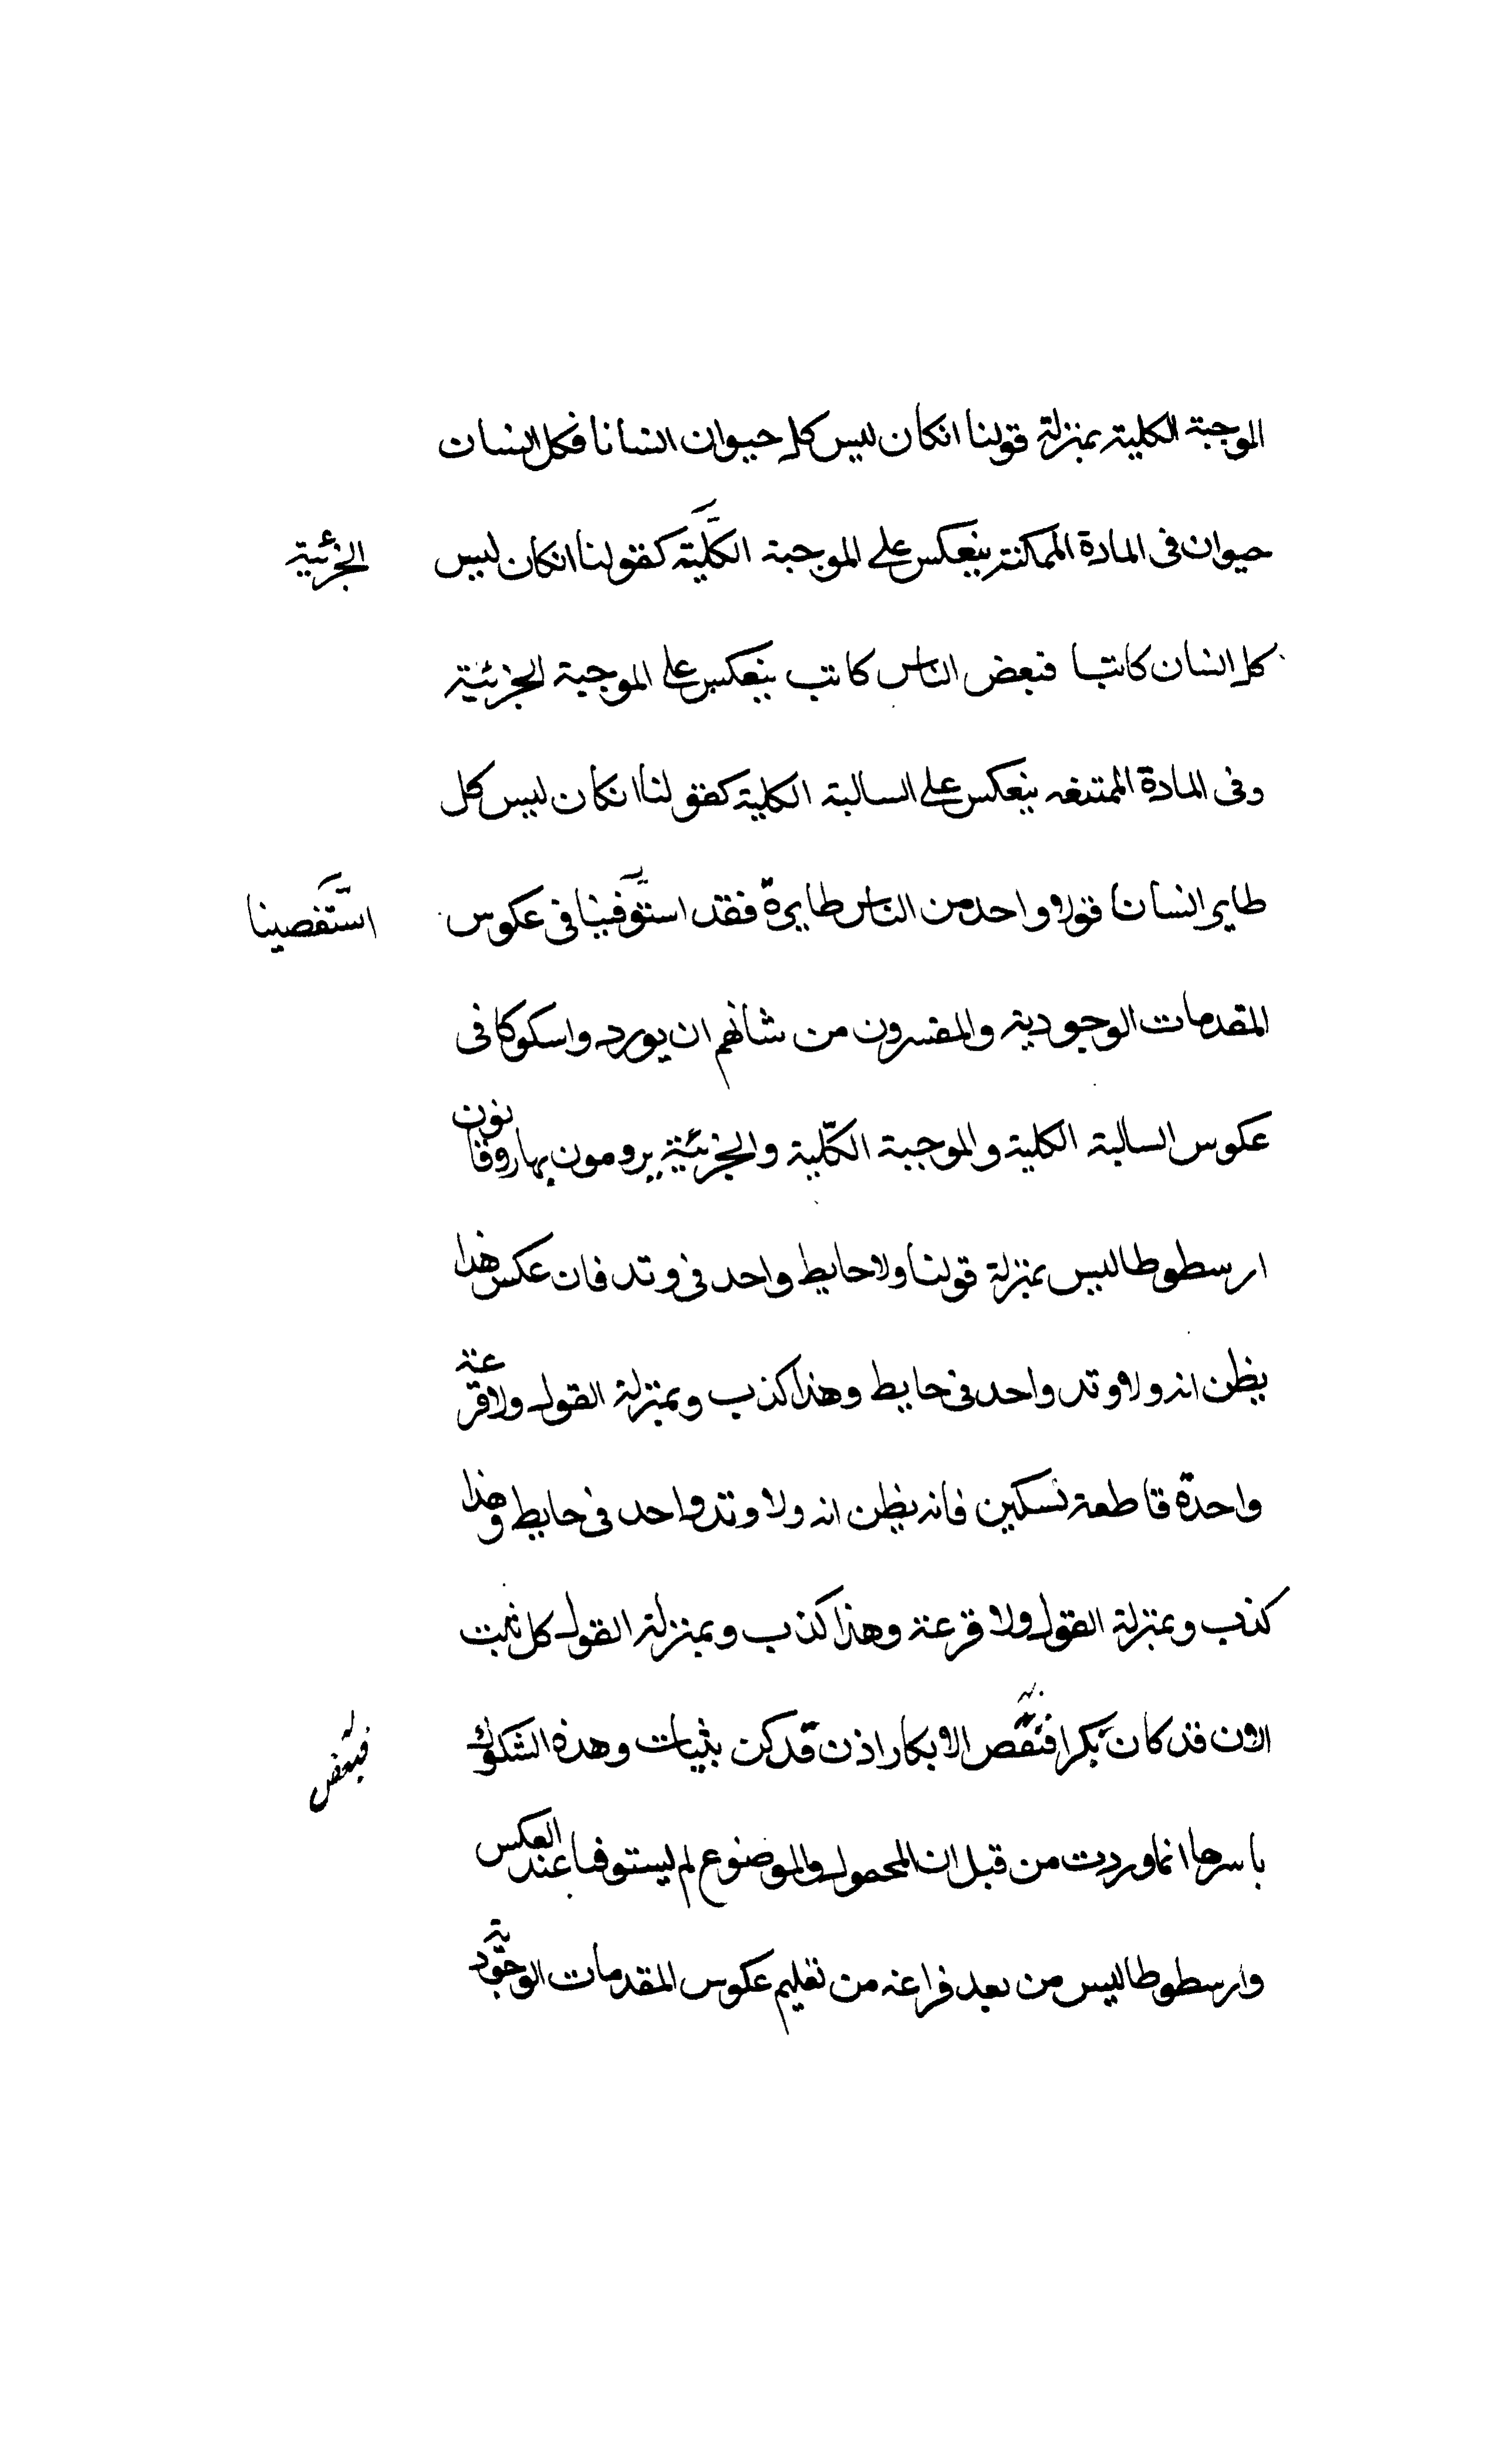 الموجبة الكلية بمنزلة قولنا انكان ليس كل حيوان انسانا فكل انسان
حيوان فى المادة الممكنة ينعكس على الموجبة الكلية كقولنا انكان ليس
الجزئية
كل انسان كاتبا فبعض الناس كاتب ينعكس على الموجبة الجزئية
وفى المادة الممتنعه ينعكس على السالبة الكلية كقولنا انكان ليس كل
طاير انسانا فولا واحد من الناس طايرة فقد استوفينا فى عكوس
استقصينا
المقدمات الوجودية والمفسرون من شانهم ان يوردوا سكوكا فى
عكوس السالبة الكلية والموجبة الكلّية والجزئية يرومون بها
ارسطوطاليس بمنزلة قولنا ولا حايط واحد فى وتد فان عكس هذا
يظن انه ولا وتد واحد فى حايط وهذا كذب وبمنزلة القول ولا قرعة
واحدة قاطعة بسكين فانه يظن انه ولا وتد واحد فى حايط وهذا
كذب وبمنزلة القول ولا قرعة وهذا كذب وبمنزلة القول كل ثيب
الان قد كان بكرا الابكار اذن قد كن ثيبات وهذه الشكوك
باسرها انما وردت من قبل ان المحمول والموضوع لم يستوفا عند العكس
وارسطوطاليس من بعد فراغه من تعليم عكوس المقدمات الوجودية